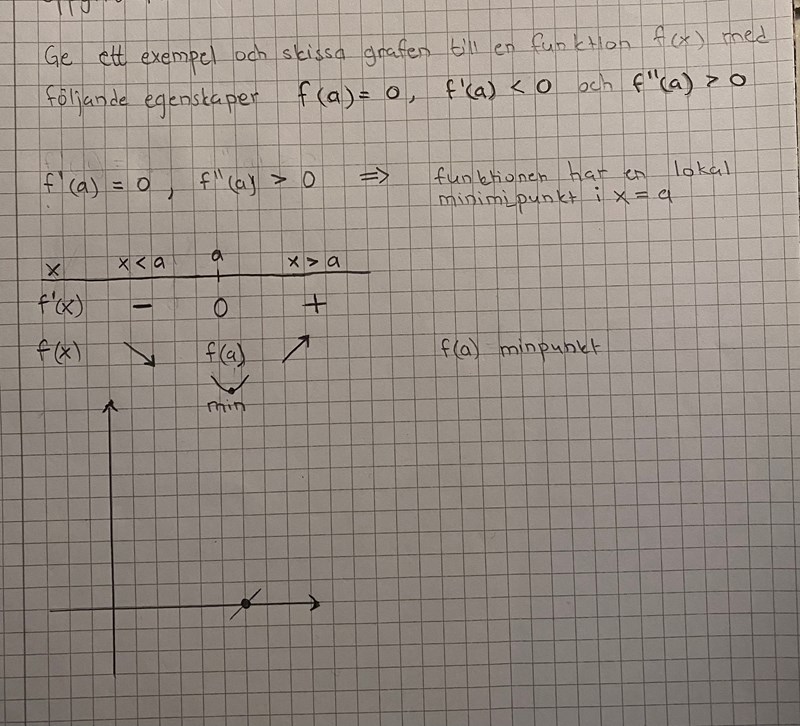 Ge ett exempel och skissa grafen till en funktion f(x) med
följande egenskaper f(a) = 0, f'(a) < 0 och f''(a) > 0
f'(a) = 0, f''(a) > 0 => funktionen har en lokal
minimipunkt i x = a
x x < a a x > a
f'(x) - 0 +
f(x) ↘ f(a) ↗ f(a) minpunkt
min